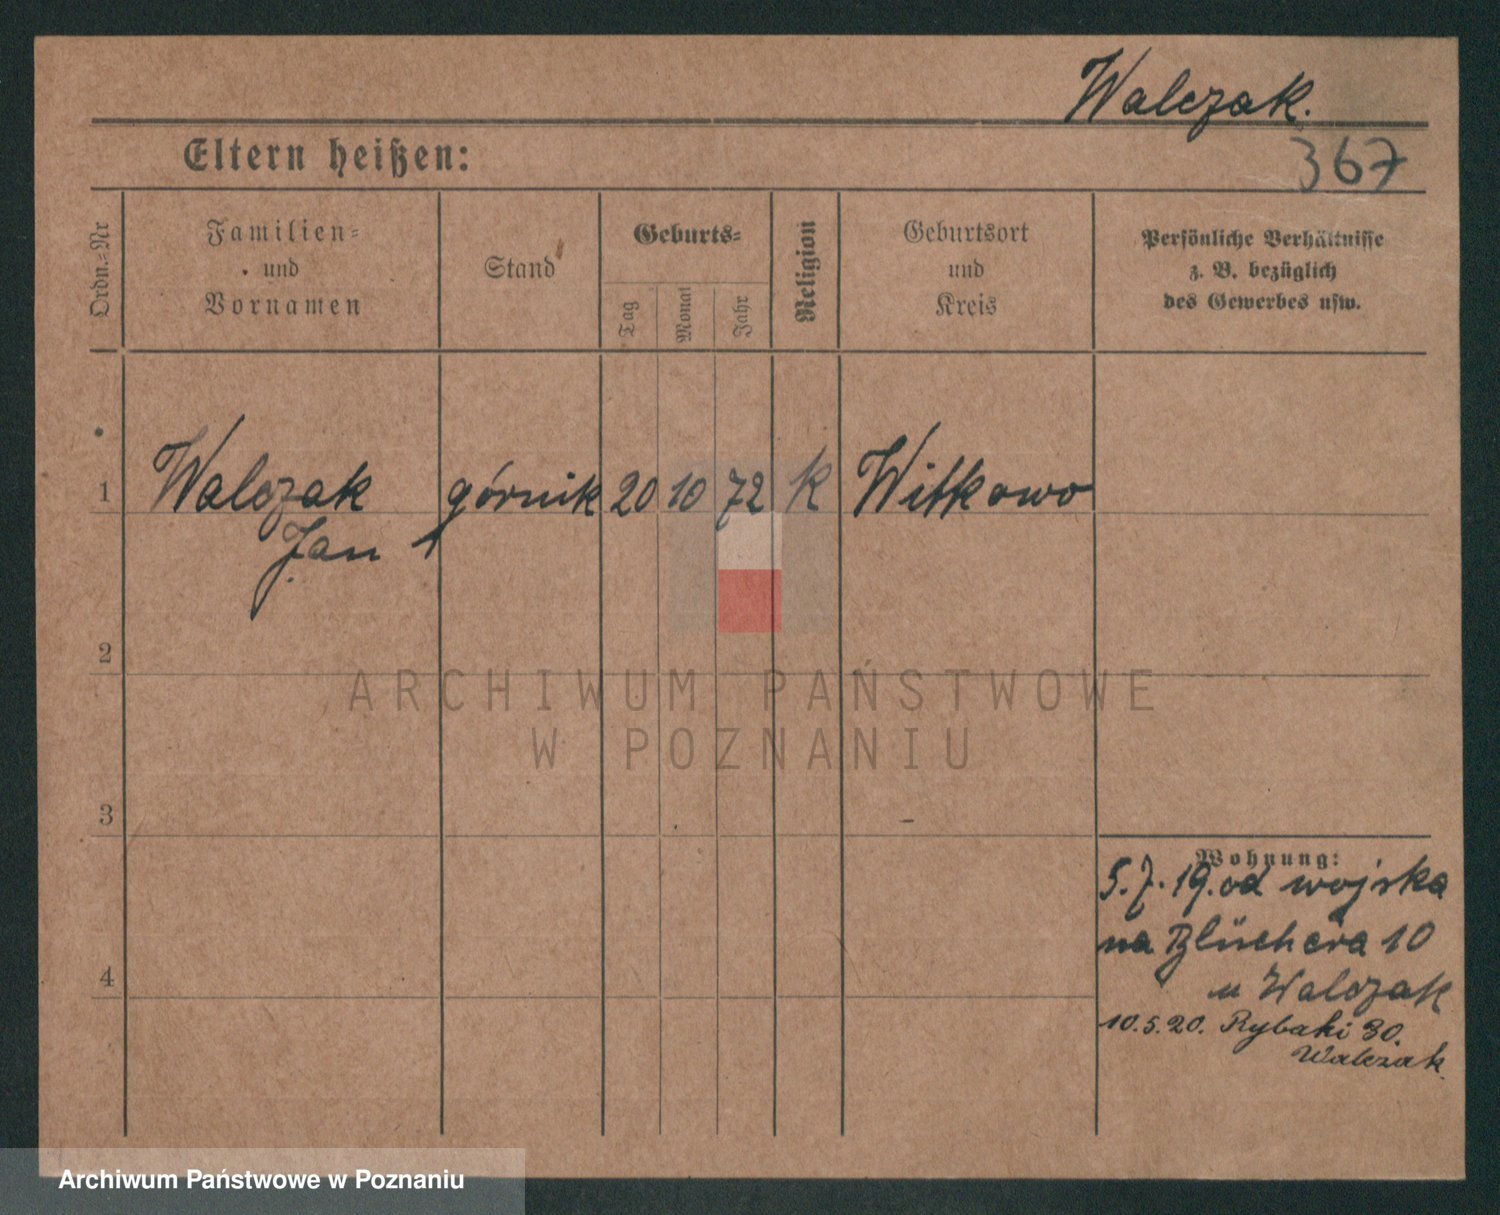 Walczak.
Eltern heißen:
367
Ordn.-Nr
Familien-
und
Vornamen
Stand
Geburts-
Tag
Monat
Jahr
Religion
Geburtsort
und
Kreis
Persönliche Verhältnisse
z. B. bezüglich
des Gewerbes usw.
1 Walczak górnik 20 10 72 k Witkowo
Jan
2
ARCHIWUM PAŃSTWOWE
W POZNANIU
3
Wohnung:
5.7.19. od wojska
na Blüchera 10
4
u Walczak
10.5.20. Rybaki 30.
Walczak.
Archiwum Państwowe w Poznaniu